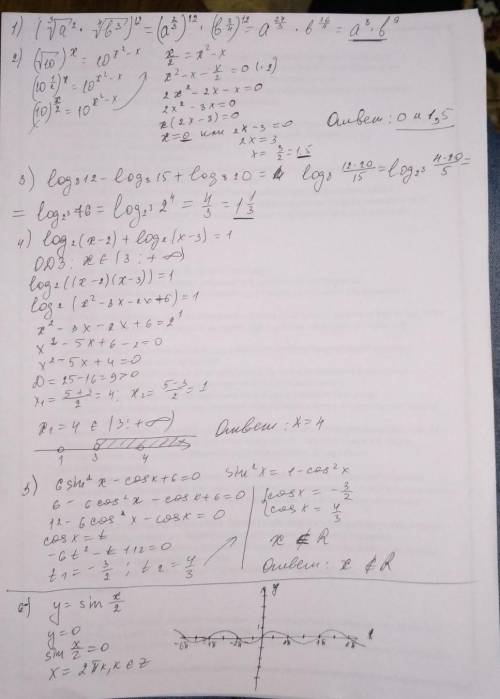 1) (∛a² · ∜b³)¹² = (a^(2/3))¹² · (b^(3/4))¹² = a^(24/3) · b^(36/4) = a⁸ · b⁹
2) (√10)ˣ = 10^(x²-x)
(10^(1/2))ˣ = 10^(x²-x)
(10)^(x/2) = 10^(x²-x)
x/2 = x²-x
x²-x-x/2 = 0 (·2)
2x²-2x-x=0
2x²-3x=0
x(2x-3)=0
x=0 или 2x-3=0
2x=3
x=3/2=1,5
Ответ: 0 и 1,5
3) log₈12 - log₈15 + log₈20 = log₈ (12·20)/15 = log₂³ (4·20)/5 =
= log₂³ 16 = log₂³ 2⁴ = 4/3 = 1 1/3
4) log₂(x-2) + log₂(x-3) = 1
ОДЗ: x ∈ (3; +∞)
log₂((x-2)(x-3)) = 1
log₂(x²-3x-2x+6) = 1
x²-3x-2x+6=2¹
x²-5x+6-2=0
x²-5x+4=0
D=25-16=9>0
x₁=(5+3)/2=4; x₂=(5-3)/2=1
x₁=4 ∈ (3; +∞)
1 3 4
Ответ: x=4
5) 6sin²x - cosx+6=0
6-6cos²x-cosx+6=0
12-6cos²x-cosx=0
cosx=t
-6t²-t+12=0
t₁=-3/2; t₂=4/3
sin²x=1-cos²x
cosx=-3/2
cosx=4/3
x ∉ R
Ответ: x ∉ R
6) y=sin x/2
y=0
sin x/2=0
x=2πk, k∈Z
y
x